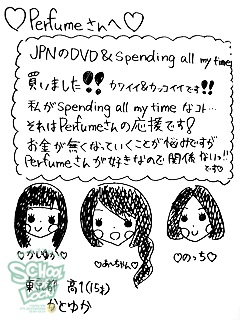 ♡Perfumeさんへ♡
JPNのDVD&Spending all my time
買いました!! カワイイ&カッコイイです!!
私がSpending all my timeなコト…
それはPerfumeさんの応援です!
お金が無くなっていくことが悩けですが
Perfumeさんが好きなので関係ないっ!!
です♡
♡かしゆか♡
♡あ〜ちゃん♡
♡のっち♡
SCHOOL
LOCK!
東京都 高1(15才)
かとゆか